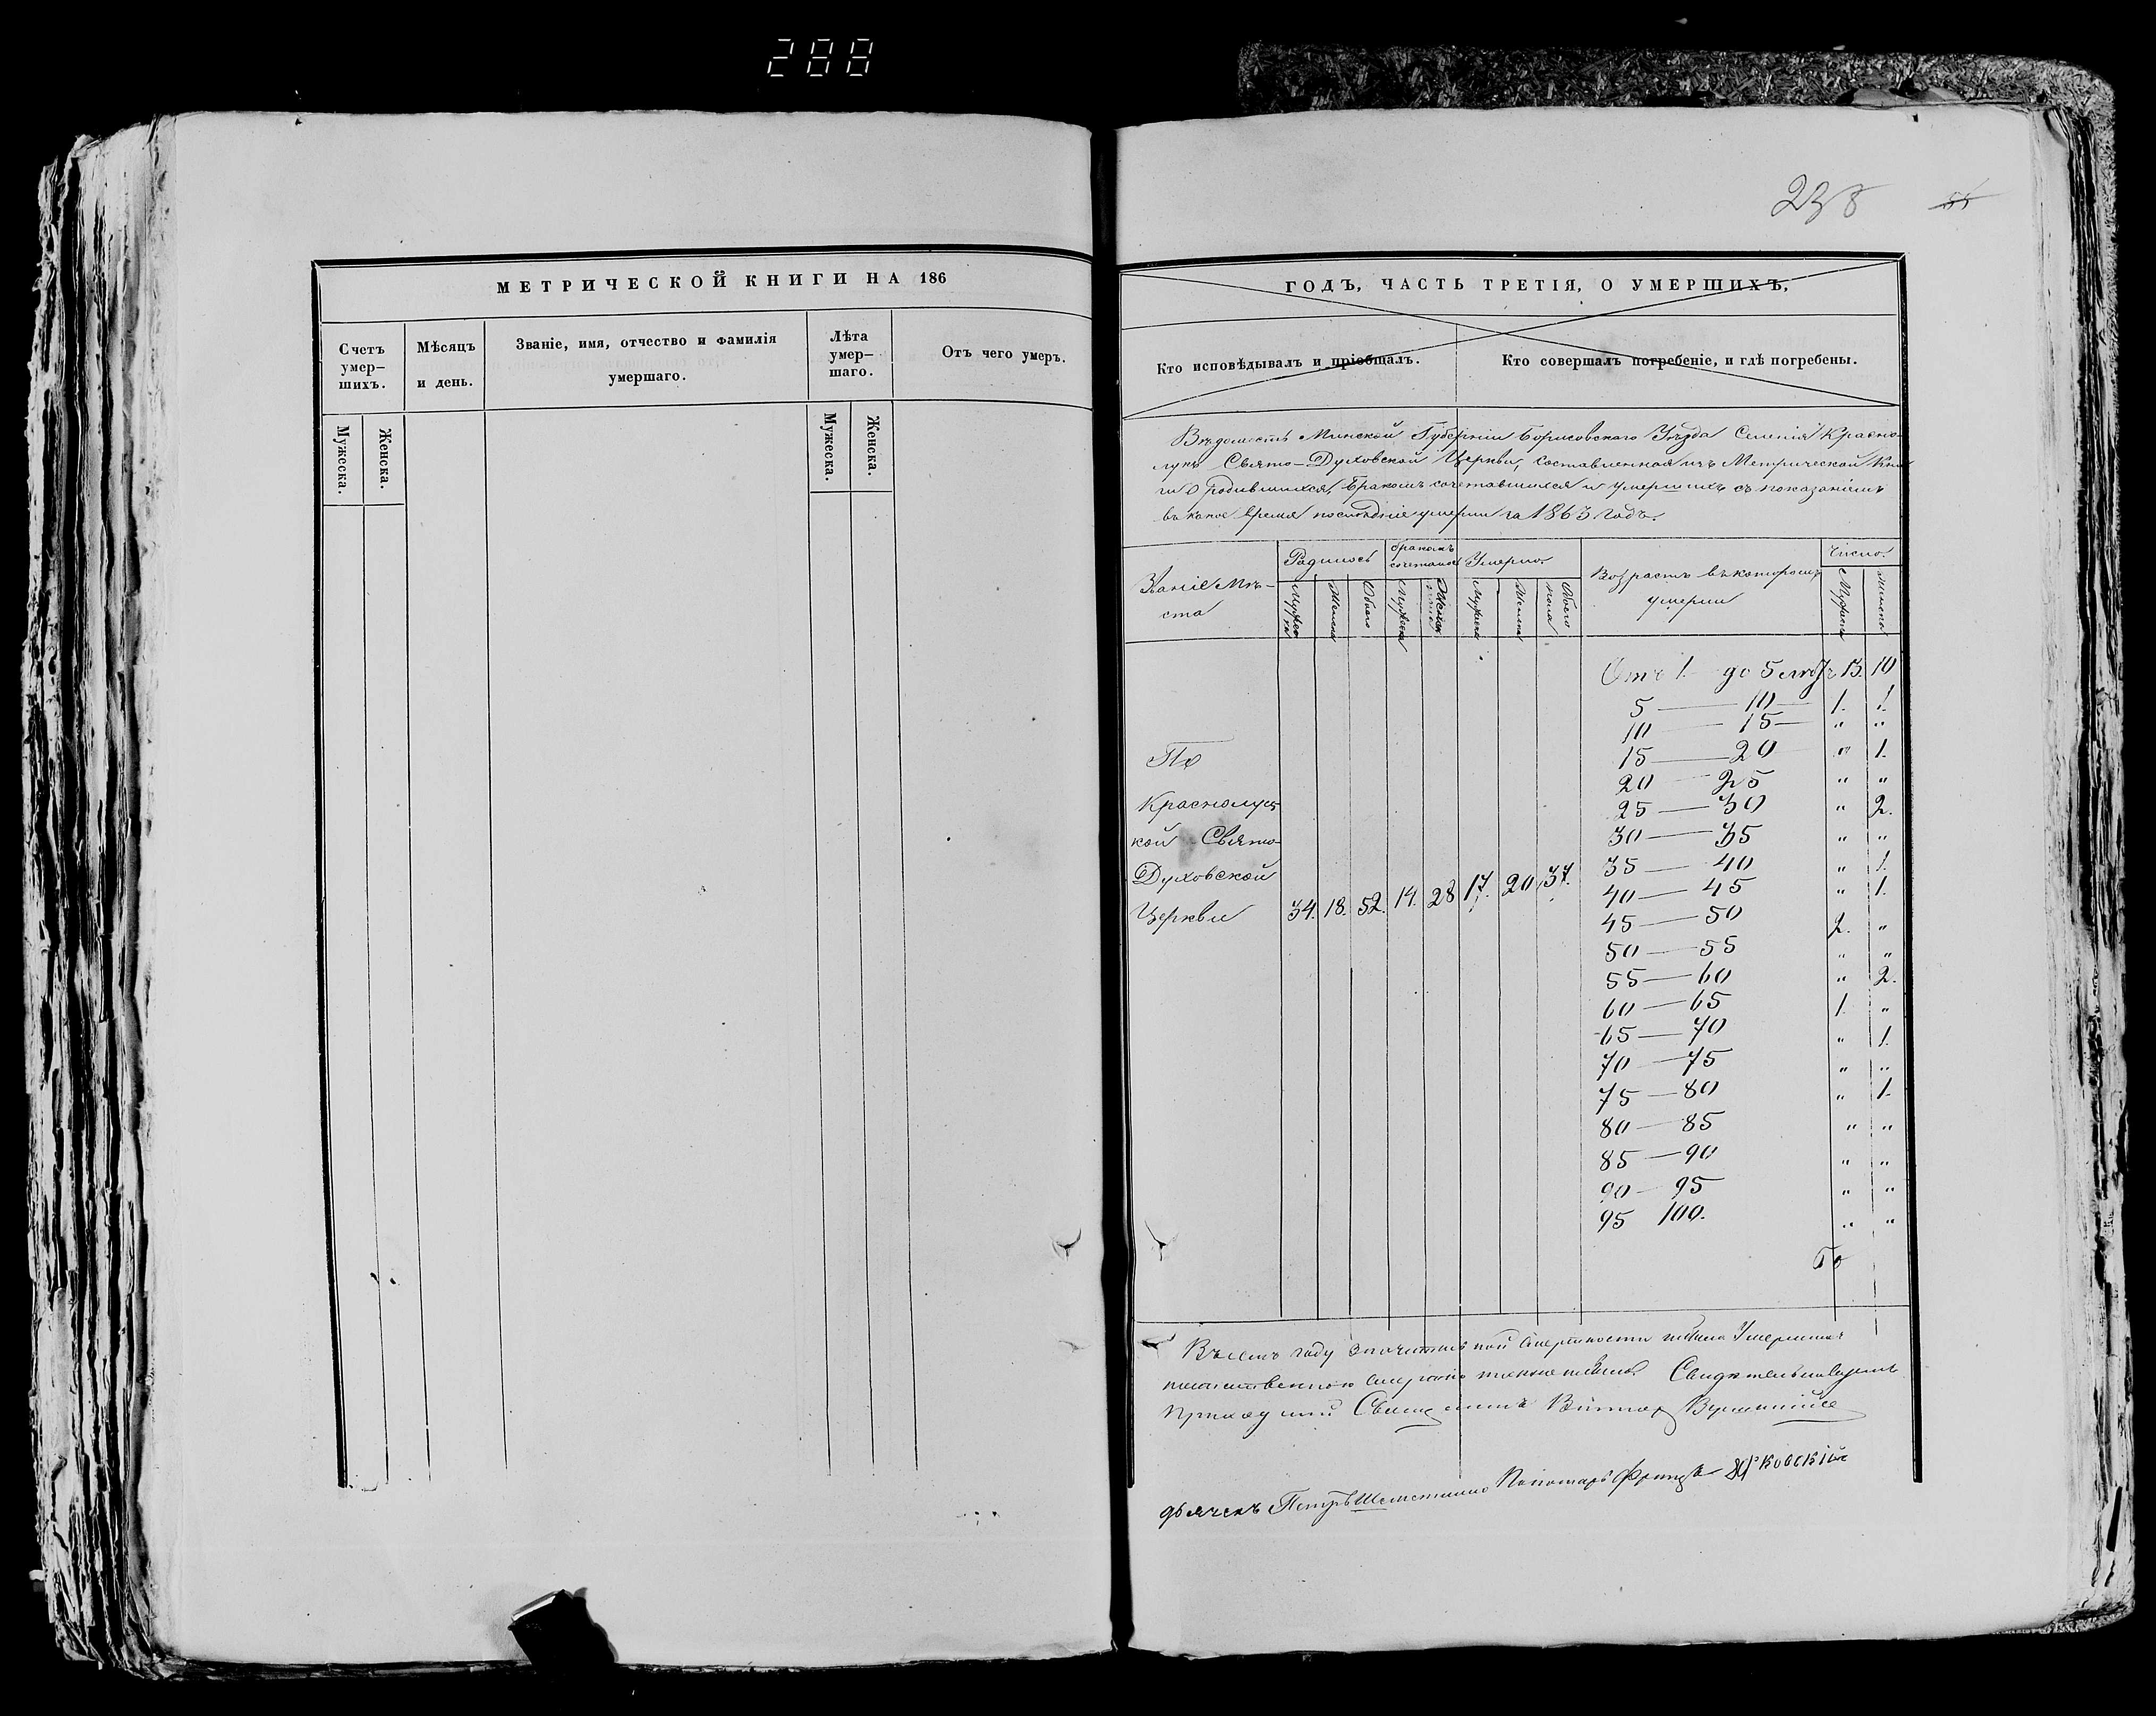 288
238
МЕТРИЧЕСКОЙ КНИГИ НА 186
Счетъ умер-шихъ.
Мужеска.
Женска.
Мѣсяцъ и день.
Званіе, имя, отчество и фамилія умершаго.
Лѣта умер-шаго.
Мужеска.
Женска.
Отъ чего умеръ.
ГОДЪ, ЧАСТЬ ТРЕТІЯ, О УМЕРШИХЪ,
Кто исповѣдывалъ и пріобщалъ.
Кто совершалъ погребеніе, и гдѣ погребены.
Вѣдомость Минской Губерніи Борисовскаго Уѣзда Селенія Красно-
лукъ Свято-Духовской Церкви, составленная изъ Метрической Кни
ги о родившихся, бракомъ сочетавшихся и умершихъ съ показаніемъ
въ какое время последніе умерли за 1863 годъ.
Званіе Мѣ-
ста
Родилось
бракомъ
Умерло.
Возрастъ въ которомъ
умерли
Число.
Обоего
Обоего
пола
Отъ 1. до 5 лѣтъ 13. 10
5 — 10 — 1. 1.
10 — 15 — " "
15 — 20 " 1.
20 — 25 " "
25 — 30 " 2.
30 — 35 " "
35 — 40 " 1.
40 — 45 " 1.
45 — 50 2. "
50 — 55 " "
55 — 60 " 2.
60 — 65 1. "
65 — 70 " 1.
70 — 75 " "
75 — 80 " 1.
80 — 85 " "
85 — 90 " "
90 — 95 " "
95 100. " "
По
Краснолуц
кой Свято-
Духовской
Церкви 34. 18. 52. 14. 28 17. 20. 37.
Въ семъ году значительной смертности небыло Умершихъ
Свидѣтельствуемъ
Приходскій Священникъ
дьячекъ Петръ
Пономарь